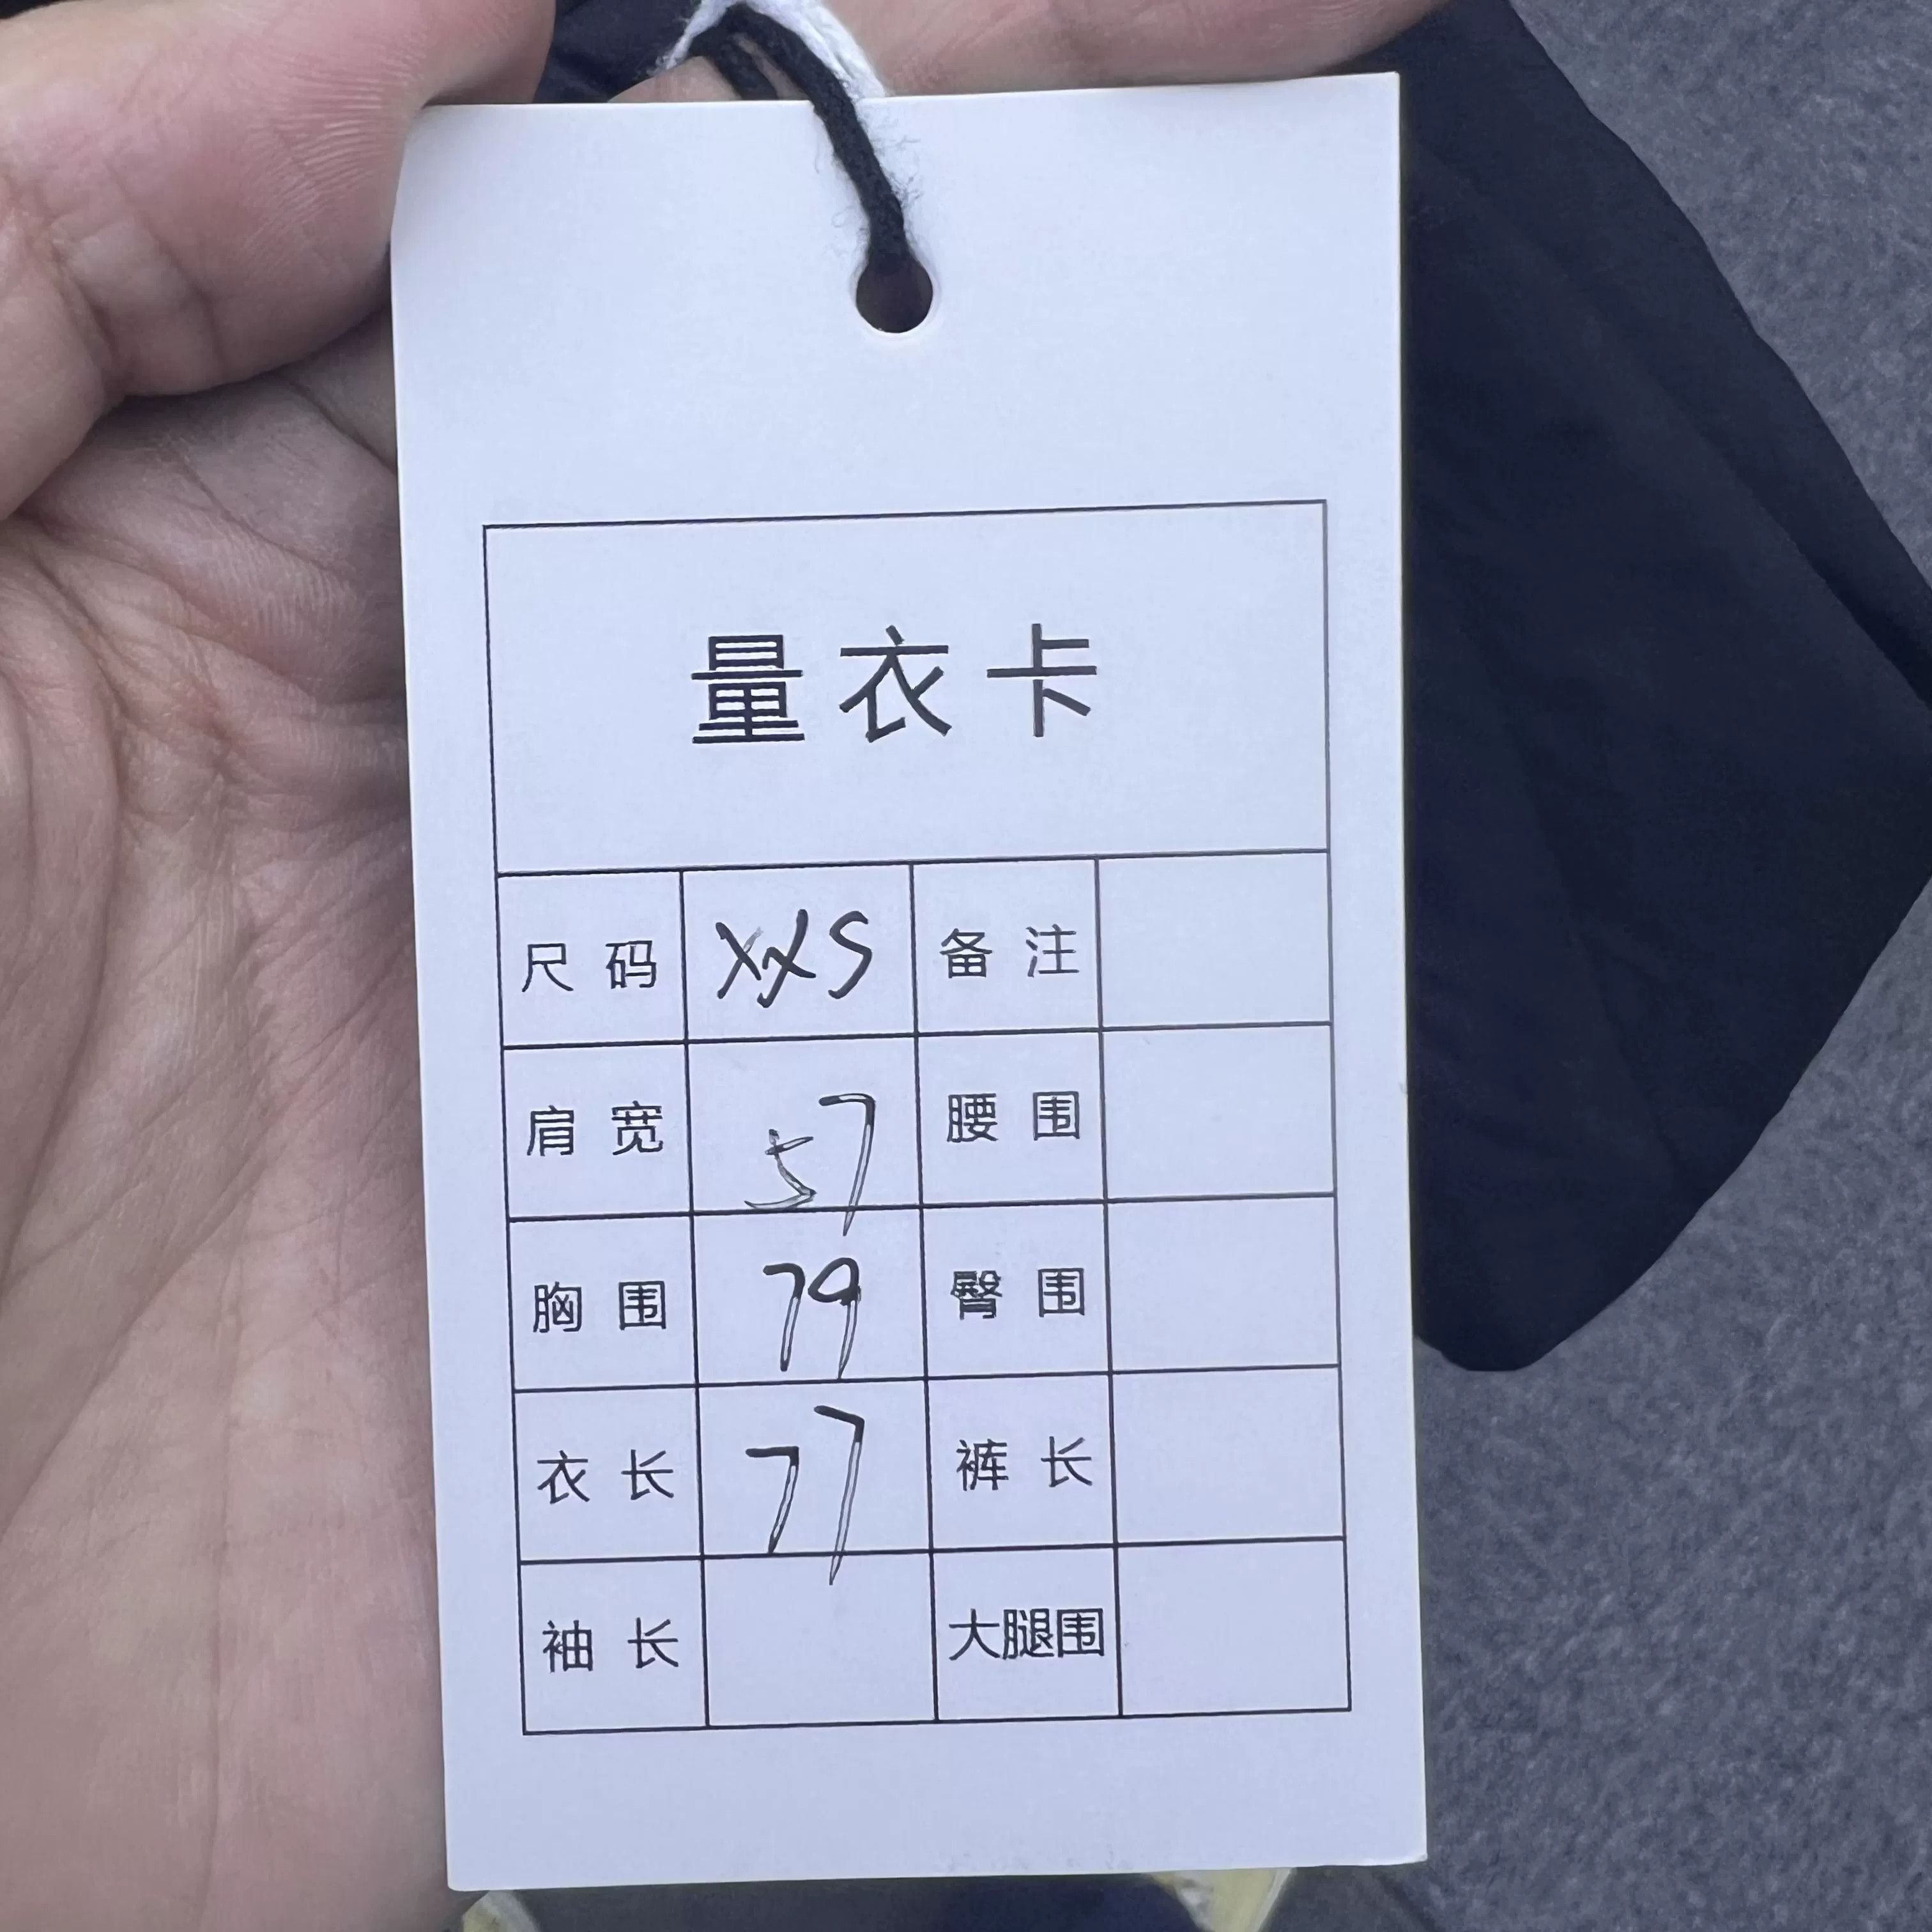 量衣卡
尺码 XXS 备注
肩宽 57 腰围
胸围 79 臀围
衣长 77 裤长
袖长 大腿围